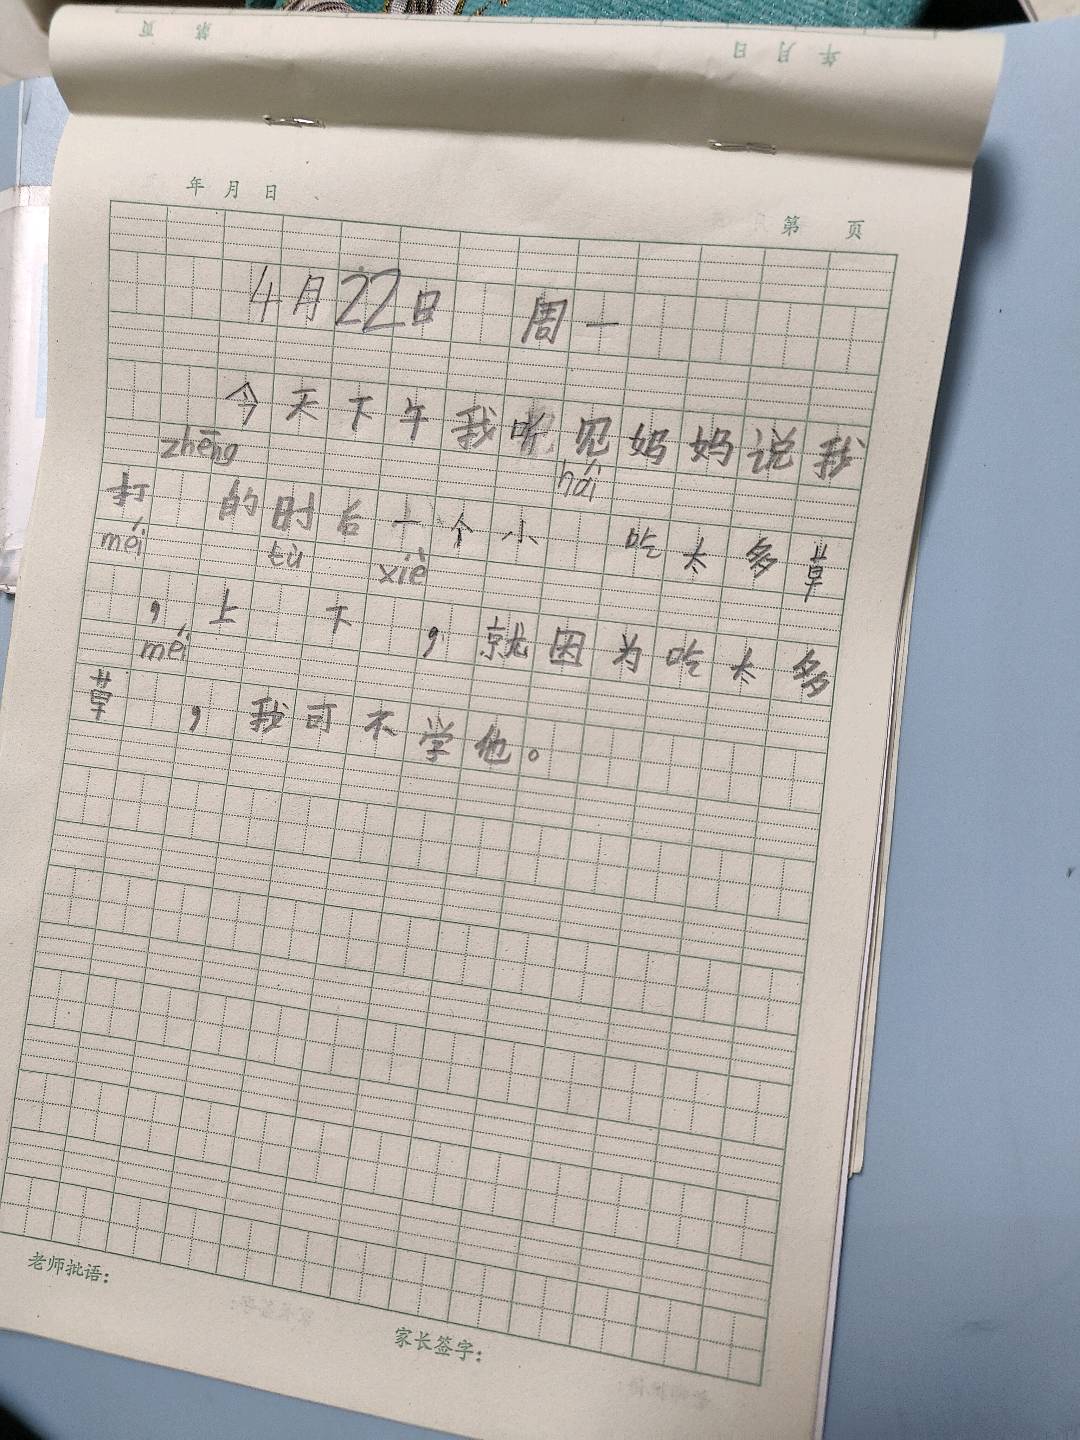 年 月 日
第 页
4月22日 周一
今天下午我听见妈妈说我
zhēng hái
打 的时后一个小 吃太多草
méi tù xiè
，上 下 ，就因为吃太多
méi
草 ，我可不学他。
老师批语：
家长签字：